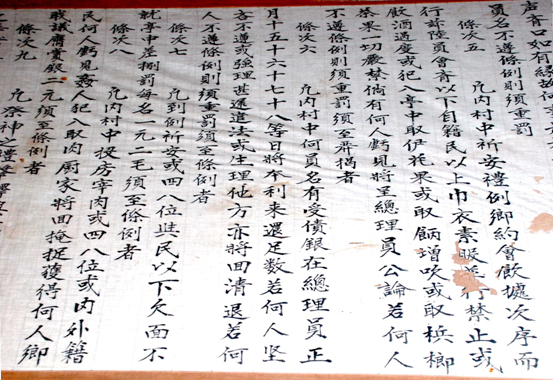 口如有緣故何
員名不遵條例則須重罰
條次五 凡內村中祈安禮例鄉約會飲攄次序而
行茲陸員會育以下自籍民以上巾衣素服並行禁止或
飲酒過度或犯入亭中取伊花果或取飾噌吹或取檳榔
茶果一切嚴禁倘有何人虧見將呈總理員公論若何人
不遵條例則須重者
條次六 凡內村中何員名有受債銀在總理員正
月十五十六十七十八等日將本利来還足數若何人堅
吝不遵或強理甚違道法或生理他方亦將回清退若何
人不遵條例則須重罰須至條例者
條次七 凡到例祈安或四八位與民以下欠面不
就亭中差撥罰每名一元二毛須至條例者
條次八 凡內村中投房宰肉或四八位或內外籍
民何虧見姦人犯入取肉厨家將回掩捉獲得何人鄉
或議賞銀一元須至條例者
條次九 凡祭神之禮